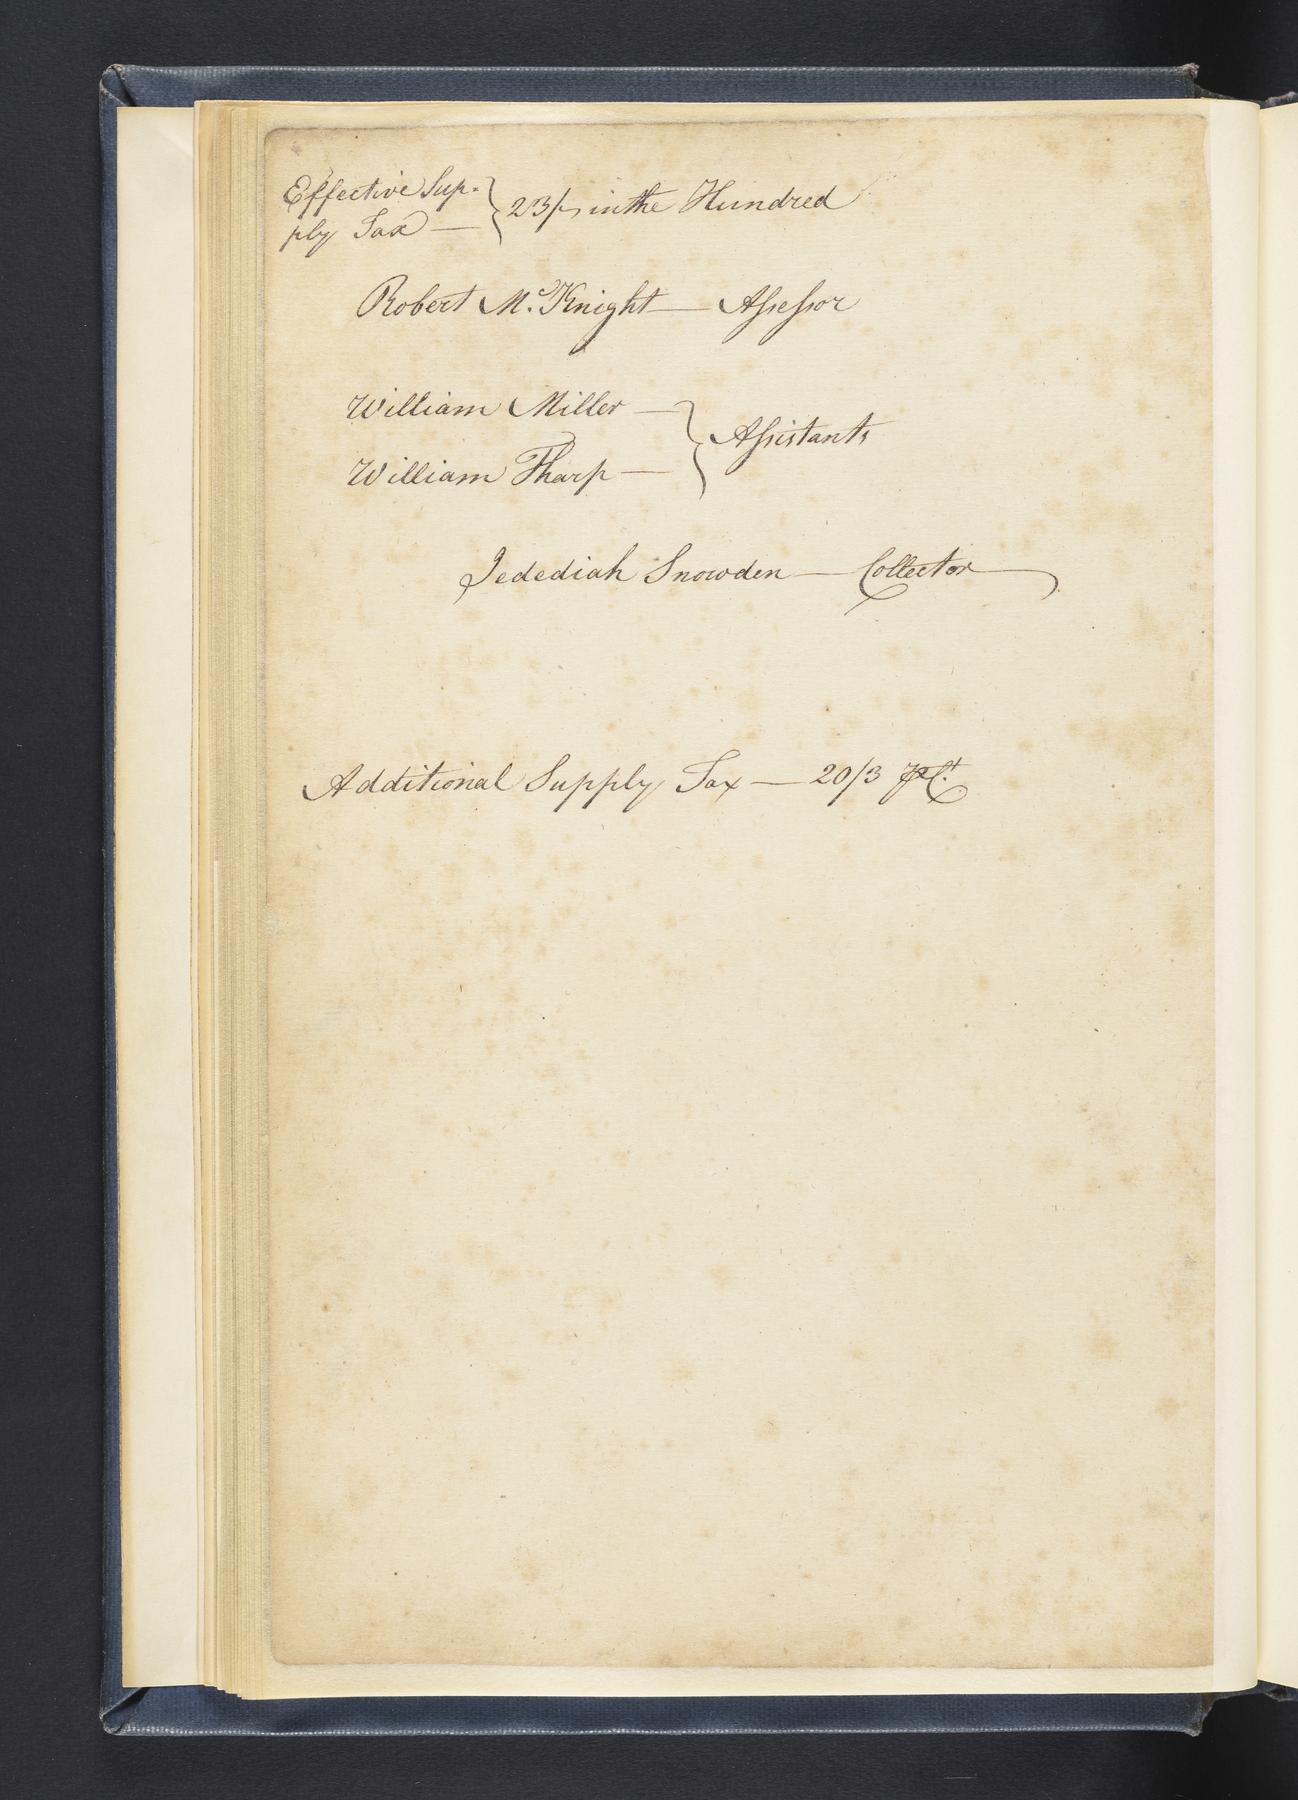 Effective Sup-
ply Tax — } 23/- in the Hundred
Robert McKnight — Assessor
William Miller —
William Tharp — } Assistants
Jedediah Snowden — Collector
Additional Supply Tax — 20/3 P Ct